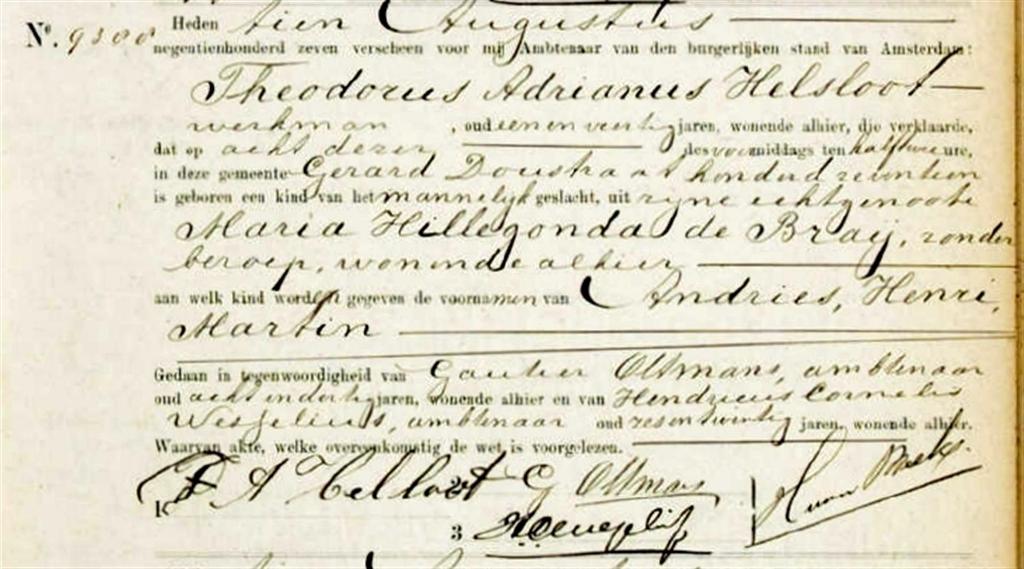 Nº. 9388 Heden tien Augustus
negentienhonderd zeven verscheen voor mij Ambtenaar van den burgerlijken stand van Amsterdam:
Theodorus Adrianus Helsloot
werkman, oud een en veertig jaren, wonende alhier, die verklaarde,
dat op acht dezer des voormiddags ten half twee ure,
in deze gemeente Gerard Doustraat honderd zeventien
is geboren een kind van het mannelijk geslacht, uit zijne echtgenoote
Maria Hillegonda de Braij, zonder
beroep, wonende alhier
aan welk kind worden gegeven de voornamen van Andries, Henri,
Martin
Gedaan in tegenwoordigheid van Gautier Oltmans, ambtenaar
oud acht en dertig jaren, wonende alhier en van Hendricus Cornelis
Wesselius, ambtenaar oud zes en twintig jaren, wonende alhier.
Waarvan akte, welke overeenkomstig de wet, is voorgelezen.
T A Helsloot G Oltmans H van
K
3